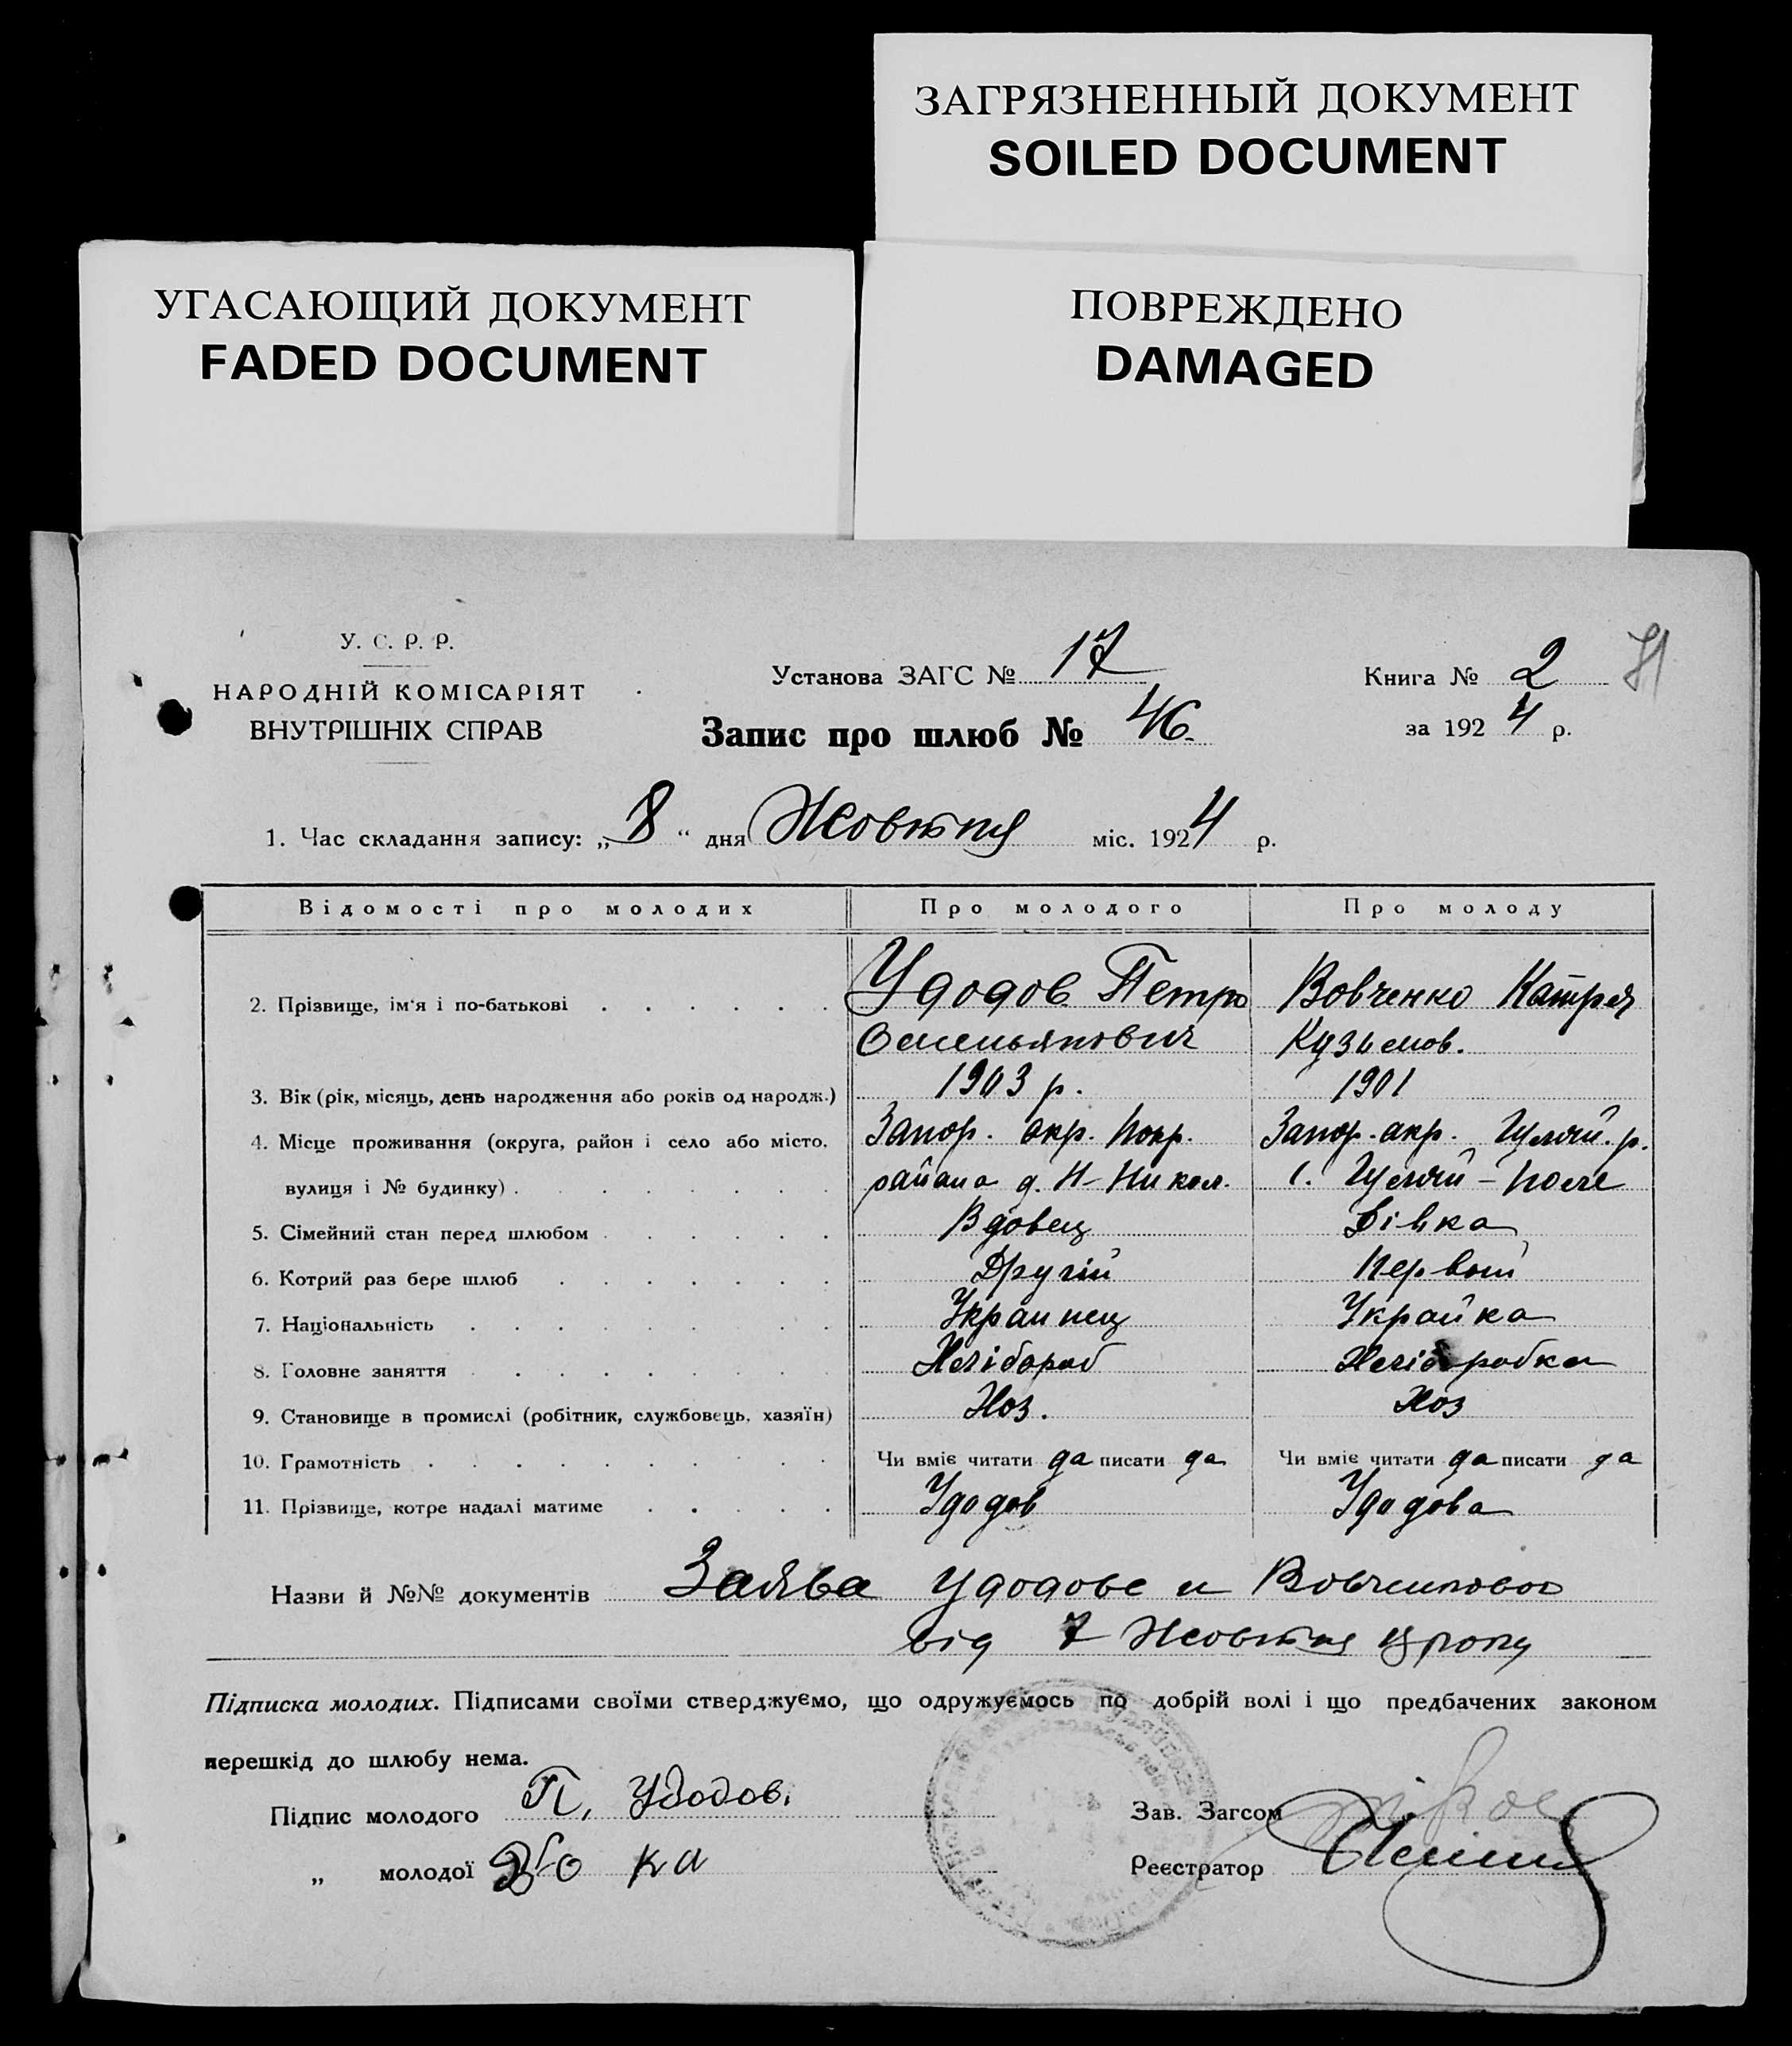 ЗАГРЯЗНЕННЫЙ ДОКУМЕНТ
SOILED DOCUMENT
УГАСАЮЩИЙ ДОКУМЕНТ
FADED DOCUMENT
ПОВРЕЖДЕНО
DAMAGED
У. С. Р. Р.
НАРОДНІЙ КОМІСАРІЯТ
ВНУТРІШНІХ СПРАВ
Установа ЗАГС № 17
Книга № 2
Запис про шлюб № 46.
за 1924 р.
1. Час складання запису: „8“ дня Жовтня міс. 1924 р.
Відомості про молодих Про молодого Про молоду
2. Прізвище, ім'я і по-батькові Удодов Петро Вовченко Катря
Омельянович Кузьмов.
3. Вік (рік, місяць, день народження або років од народж.) 1903 р. 1901
4. Місце проживання (округа, район і село або місто, Запор. окр. Покр. Запор. окр. Гуляй. р.
вулиця і № будинку) района д. Н-Никол. с. Гуляй-Поле
5. Сімейний стан перед шлюбом Вдовец Дівка
6. Котрий раз бере шлюб Другій Первый
7. Національність Украинец Украйка
8. Головне заняття Хлібороб Хліборобка
9. Становище в промислі (робітник, службовець, хазяїн) Хоз. Хоз
10. Грамотність Чи вміє читати да писати да Чи вміє читати да писати да
11. Прізвище, котре надалі матиме Удодов Удодова
Назви й №№ документів Заява Удодова и Вовченковой
від 7 Жовтня ц/року
Підписка молодих. Підписами своїми стверджуємо, що одружуємось по добрій волі і що предбачених законом
перешкід до шлюбу нема.
Підпис молодого П. Удодов.
Зав. Загсом
„ молодої
Реєстратор